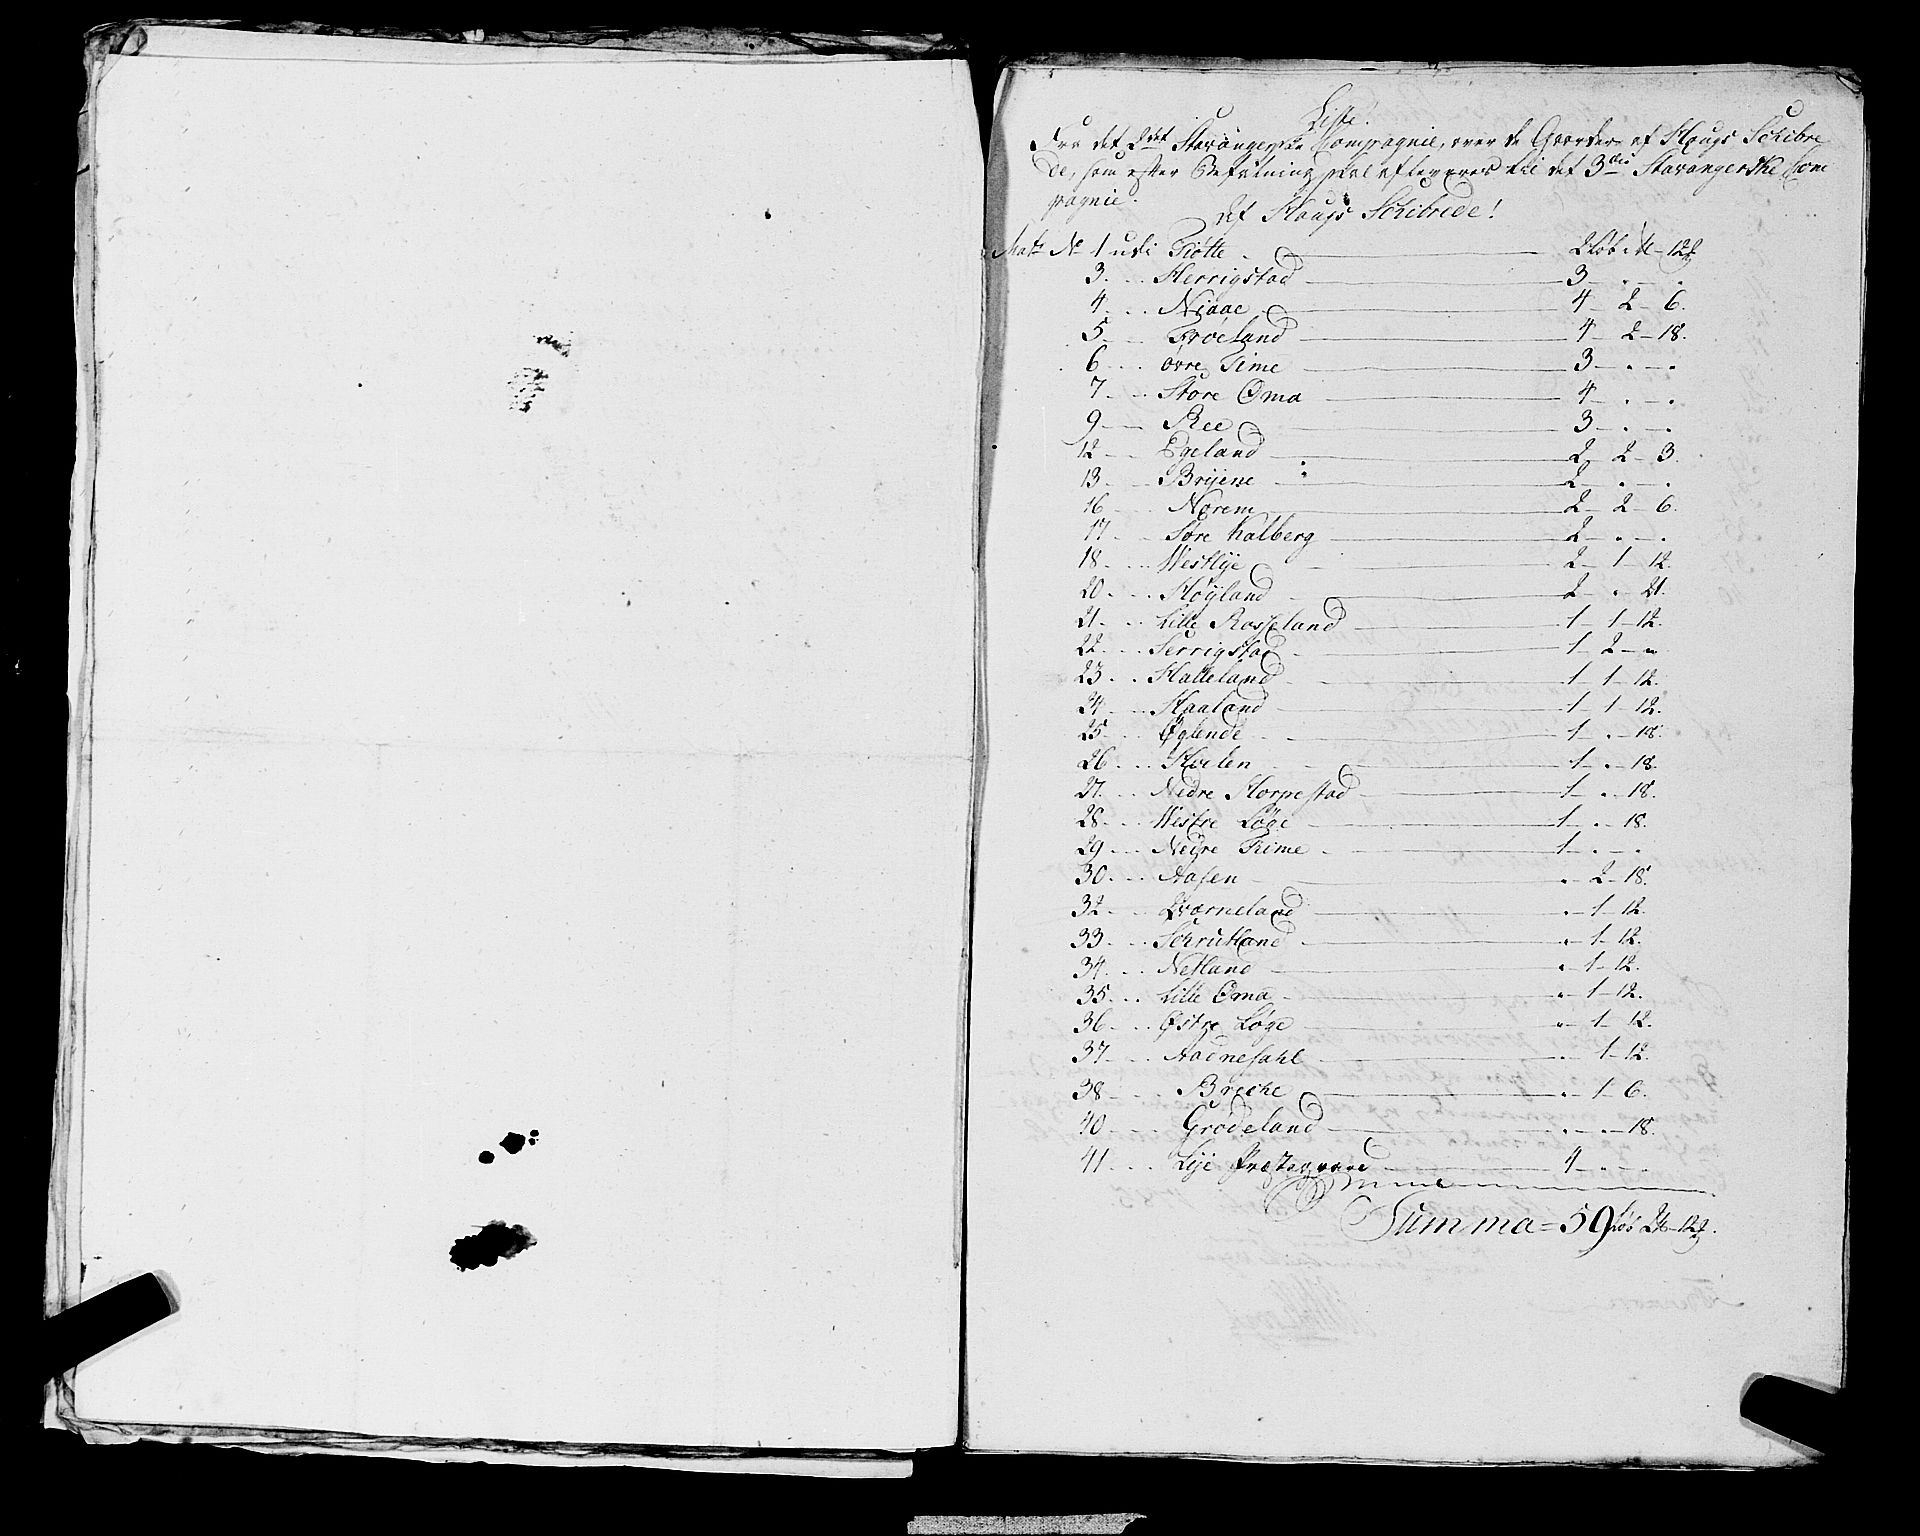 Liste.
Fra det 2det Stavangerske Compagnie, over de Gaarder af Haugs Schibre
de, som efter Befalning skal afleveres til det 3die Stavangerske Com
pagnie.
Af Haugs Schibrede!
Matr No 1 udi Tiøtte - 2 Løb 1 - 12
3. Herrigstad 3 - . - .
4. Niaae 4 - 2 - 6.
5 Frøeland 4 - 2 - 18.
6 øvre Time 3 - . - .
7 Store Oma 4 - . - .
9 Ree 3 - . - .
12 Egeland 2 2 - 3.
13 Bryene 2 - . - .
16 Norem 2 - 2 - 6.
17 Søre Kalberg 2 - . - .
18 Westlye 2 - 1 - 12.
20 Høyland 2 - . - 21.
21. Lille Rosseland 1 - 1 - 12.
22. Serrigstad 1 - 2 - "
23 Hatteland 1 - 1 - 12.
24 Haaland 1 - 1 - 12.
25 Øglende 1 - . - 18.
26 Hoelen 1 - . - 18.
27. Nedre Horpestad 1 - . - 18.
28 Westre Løge 1 - . - 18.
29 Nedre Time 1 - . - .
30 Aasen . - 2 - 18.
32 Qværneland . - 1 - 12.
33 Schrutland . - 1 - 12.
34 Netland . - 1 - 12.
35 Lille Oma . - 1 - 12.
36 Østre Løge . - 1 - 12.
37 Aadnefahl . - 1 - 12.
38 Breche . - 1 - 6.
40 Grødeland . - . - 18.
41 Lye Præstegaard 4 - . - .
Summa = 59 Løb 2 - 12.